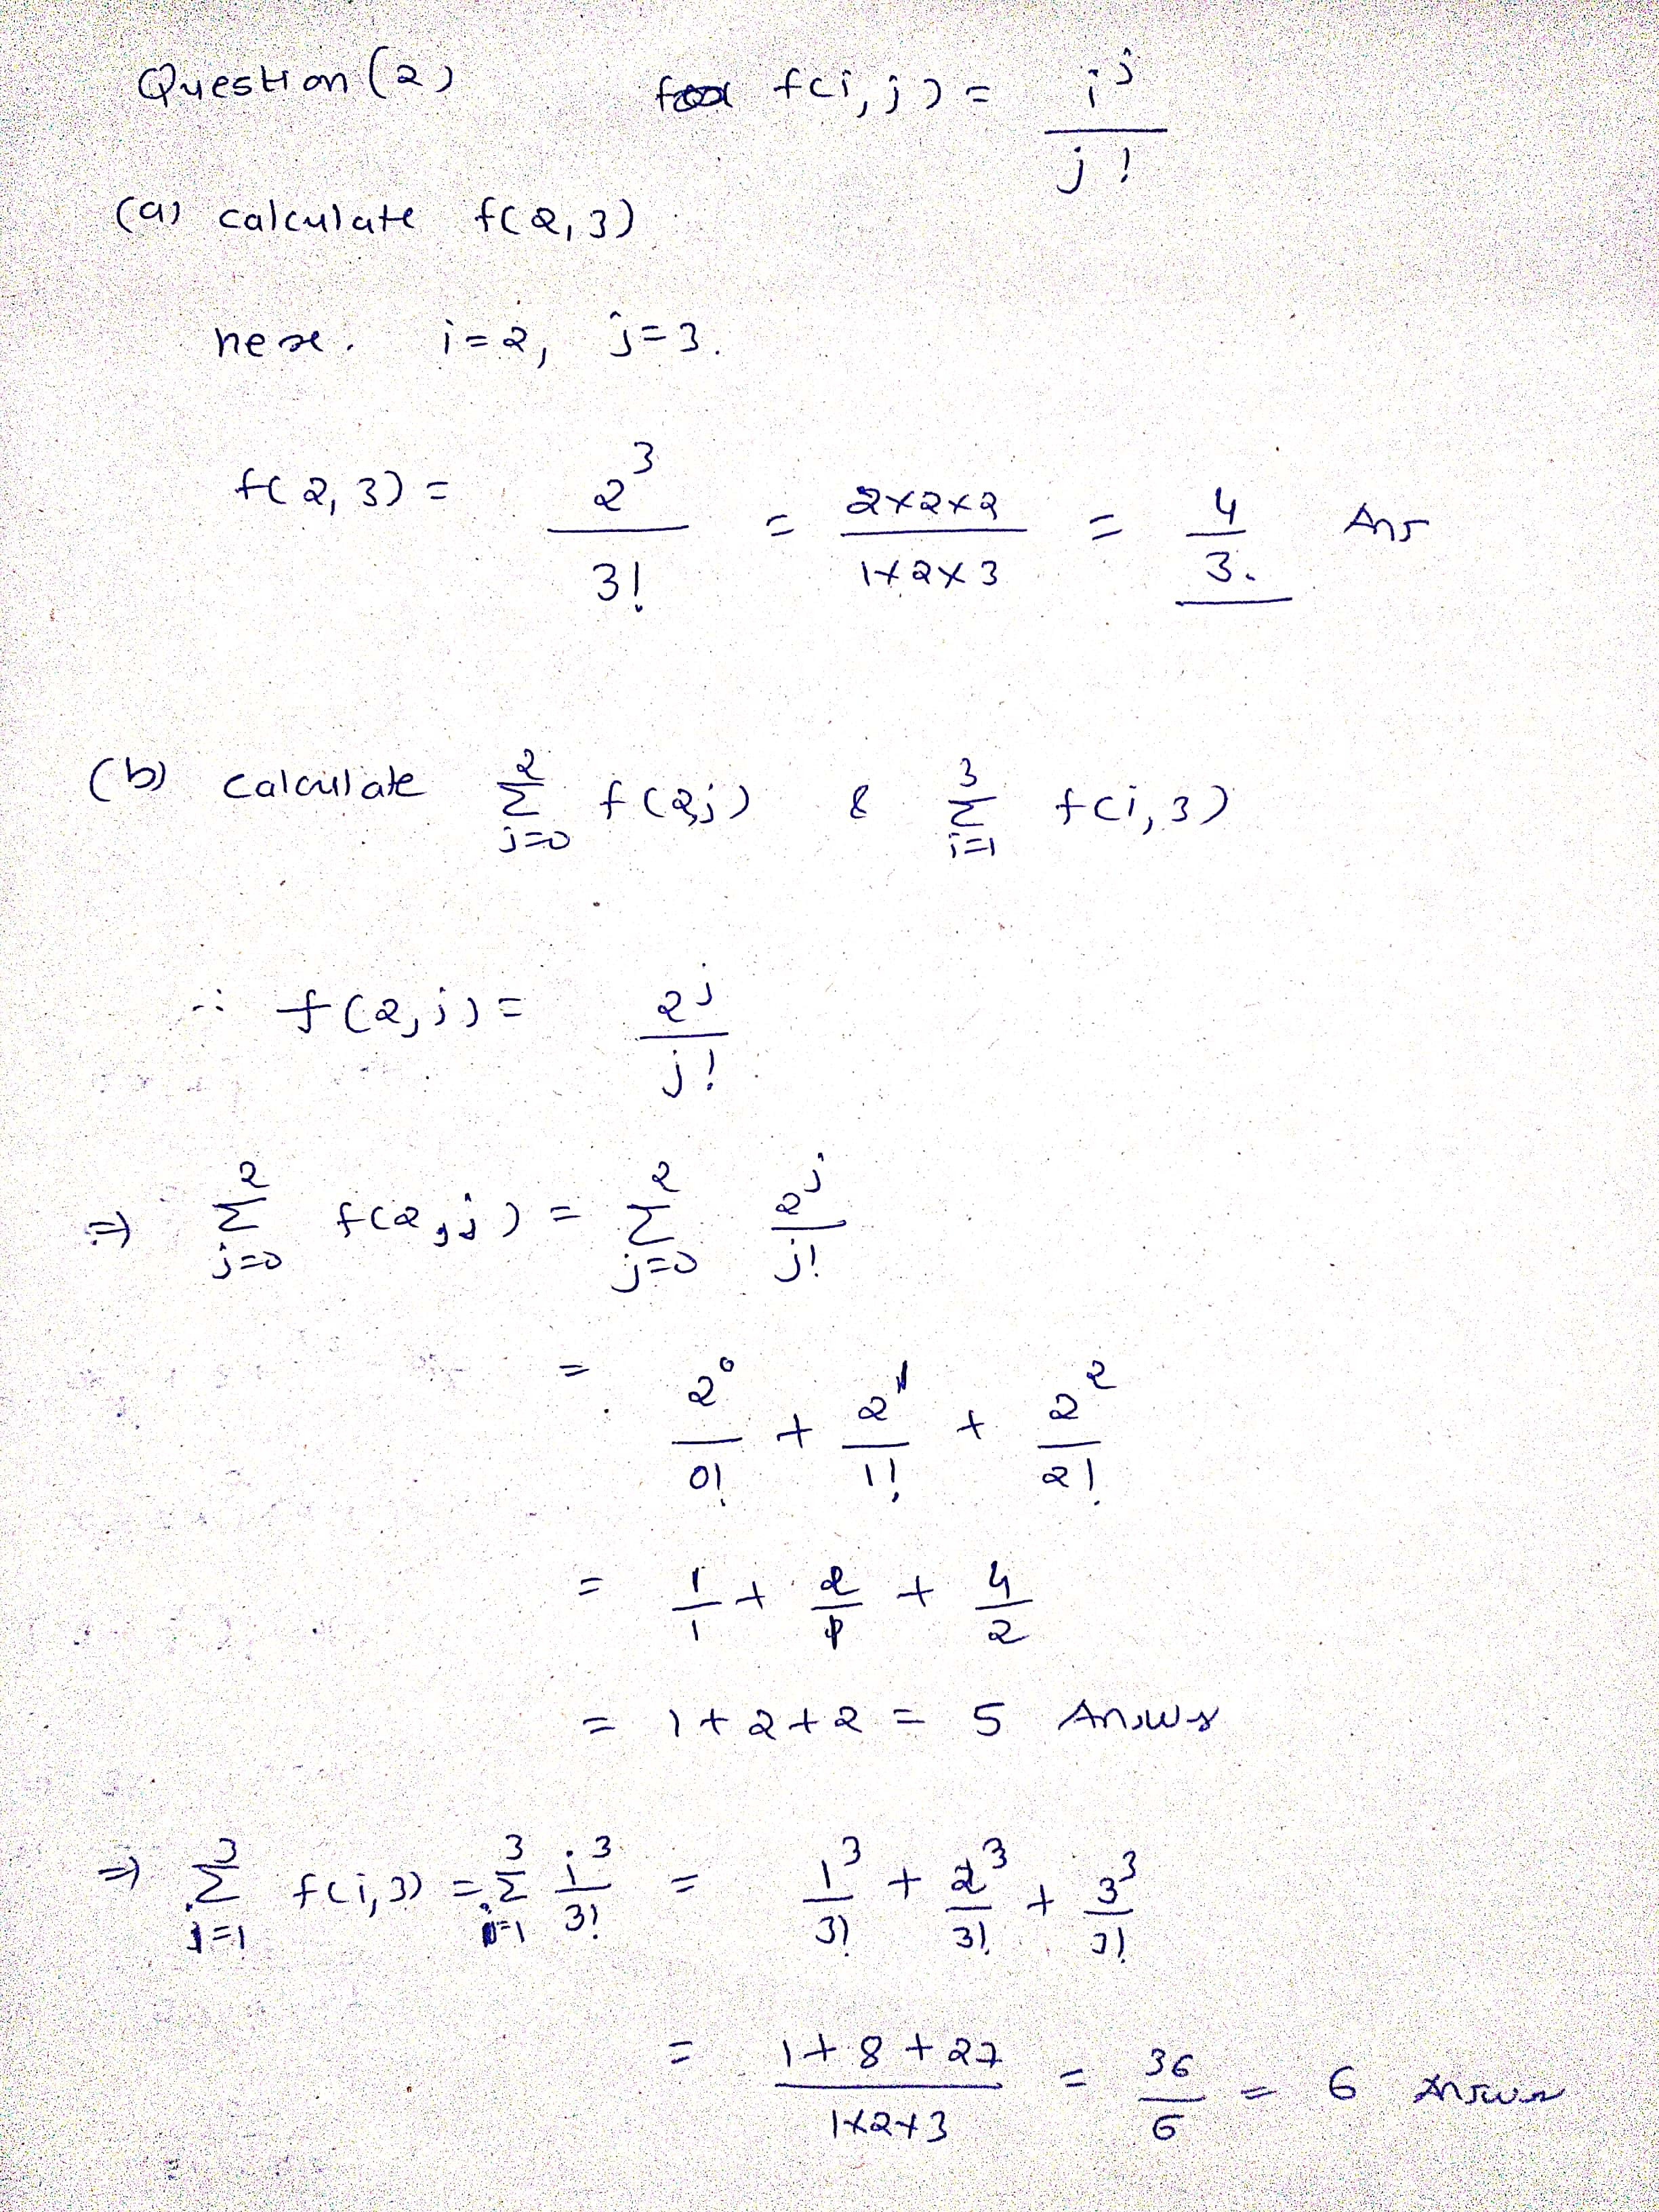 Question (2) f(i, j) = i^j / j!
(a) calculate f(2, 3)
here. i = 2, j = 3.
f(2, 3) = 2^3 / 3! = 2×2×2 / 1×2×3 = 4 / 3. Ans
(b) calculate Σ_{j=0}^{2} f(2,j) & Σ_{i=1}^{3} f(i, 3)
∵ f(2, j) = 2^j / j!
⇒ Σ_{j=0}^{2} f(2, j) = Σ_{j=0}^{2} 2^j / j!
= 2^0 / 0! + 2^1 / 1! + 2^2 / 2!
= 1/1 + 2/1 + 4/2
= 1 + 2 + 2 = 5 Answer
⇒ Σ_{i=1}^{3} f(i, 3) = Σ_{i=1}^{3} i^3 / 3! = 1^3 / 3! + 2^3 / 3! + 3^3 / 3!
= 1 + 8 + 27 / 1×2×3 = 36 / 6 = 6 Answer